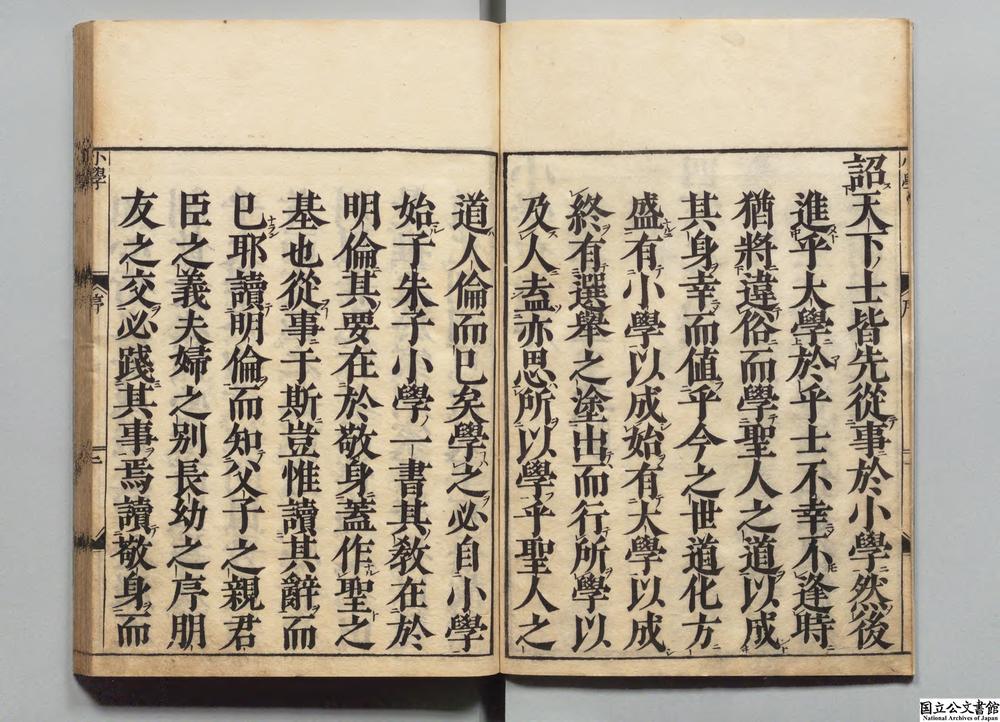 詔天下士皆先從事於小學然後
進乎大學於乎士不幸不逢時
猶將違俗而學聖人之道以成
其身幸而値乎今之世道化方
盛有小學以成始有大學以成
終有選舉之塗出而行所學以
及人盍亦思所以學乎聖人之
道人倫而已矣學之必自小學
始子朱子小學一書其教在於
明倫其要在於敬身蓋作聖之
基也從事于斯豈惟讀其辭而
已耶讀明倫而知父子之親君
臣之義夫婦之別長幼之序朋
友之交必踐其事焉讀敬身而
小學
序
二
国立公文書館
National Archives of Japan